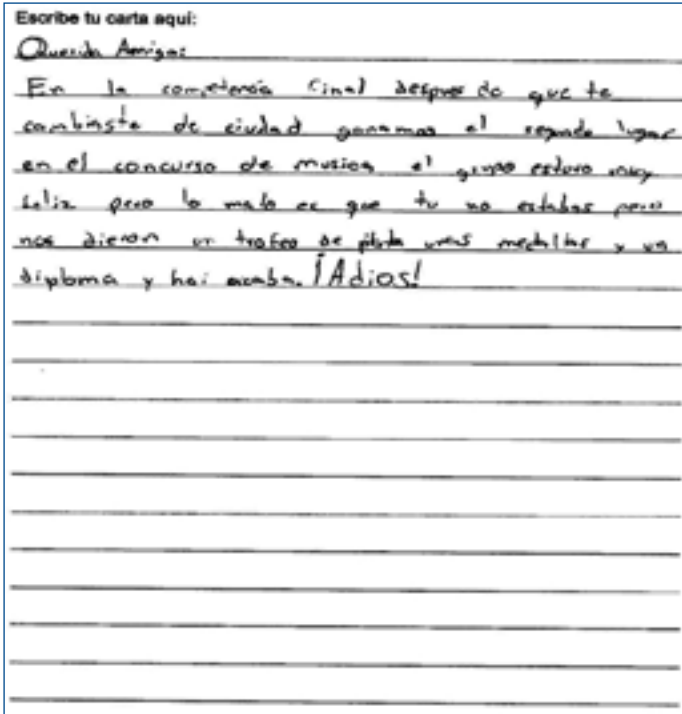 Escribe tu carta aquí:
Querida Amiga:
En la competencia final despues de que te
cambiaste de ciudad ganamos el segundo lugar
en el concurso de musica el grupo estuvo muy
feliz pero lo malo es que tu no estabas pero
nos dieron un trofeo de plata unas medallas y un
diploma y hai acaba. ¡Adios!